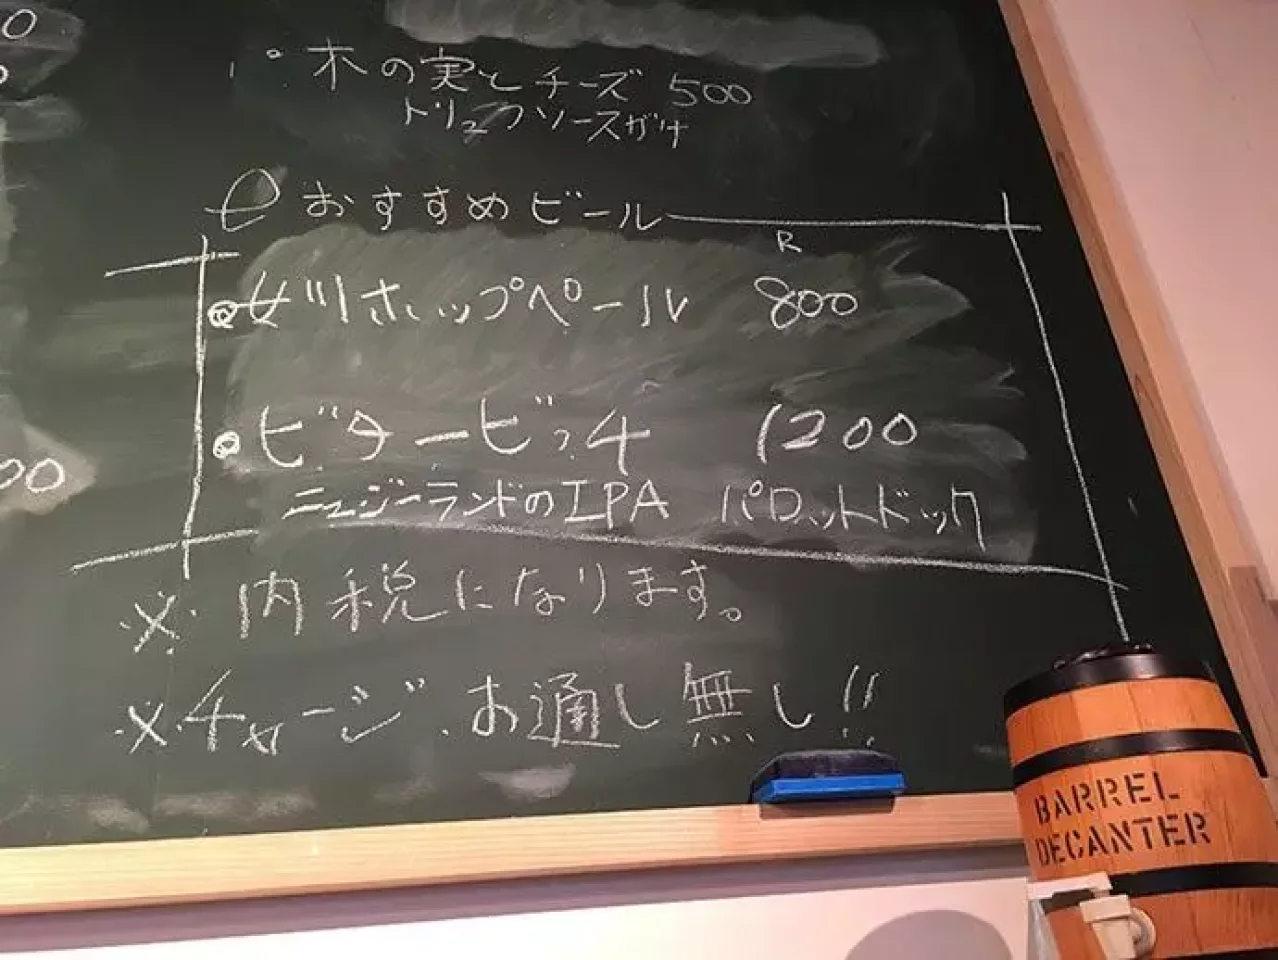 0
木の実とチーズ 500
トリュフソースがけ
おすすめビール
R
ガツリホップペール 800
ビタービッチ 1200
00
ニュージーランドのIPA パロットドック
※ 内税になります。
※ チャージ、お通し無し!!
BARREL
DECANTER